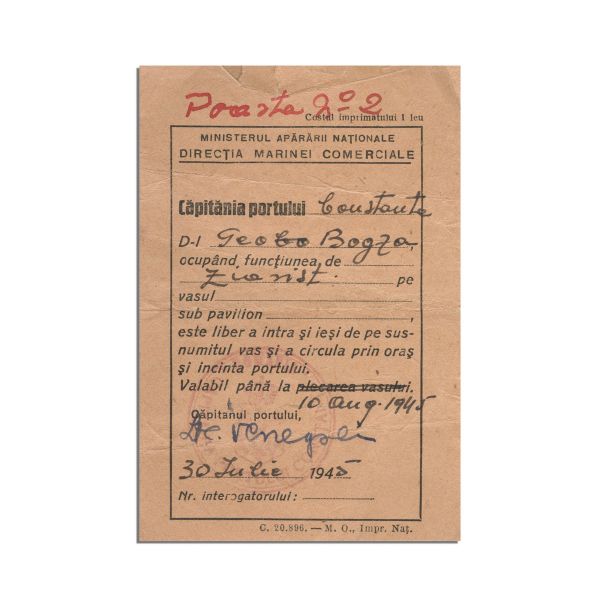 Poarta No 2
Costul imprimatului 1 leu
MINISTERUL APĂRĂRII NAȚIONALE
DIRECȚIA MARINEI COMERCIALE
Căpitănia portului Constanta
D-l Geo Bogza,
ocupând funcțiunea de
Ziarist. pe
vasul
sub pavilion ,
este liber a intra și ieși de pe sus-
numitul vas și a circula prin oraș
și incinta portului.
Valabil până la plecarea vasului.
10 Aug. 1945
Căpitanul portului,
30 Iulie 1945
Nr. interogatorului:
C. 20.896. — M. O., Impr. Naț.